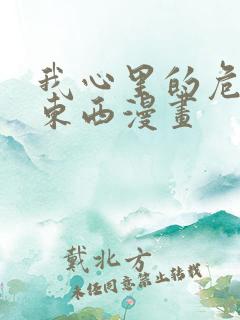 我心里的危
东西漫畫
戴北方
未经同意禁止转载